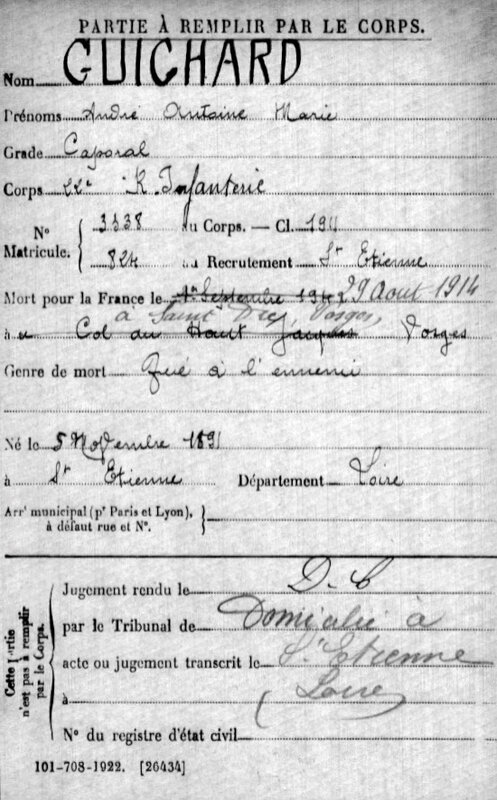 PARTIE À REMPLIR PAR LE CORPS.
Nom GUICHARD
Prénoms André Antoine Marie
Grade Caporal
Corps 22e R. Infanterie
N° Matricule. 3338 au Corps. — Cl. 1911
824 au Recrutement St Etienne
Mort pour la France le 1er Septembre 1914 29 Aout 1914
à Saint Dié, Vosges,
à Col du Haut Jacques Vosges
Genre de mort Tué à l'ennemi
Né le 5 Novembre 1891
à St Etienne Département Loire
Arrt municipal (pr Paris et Lyon), à défaut rue et N°.
Cette partie n'est pas à remplir par le Corps.
Jugement rendu le D. C
par le Tribunal de Domicilié à
acte ou jugement transcrit le St Etienne
à Loire
N° du registre d'état civil
101-708-1922. [26434]